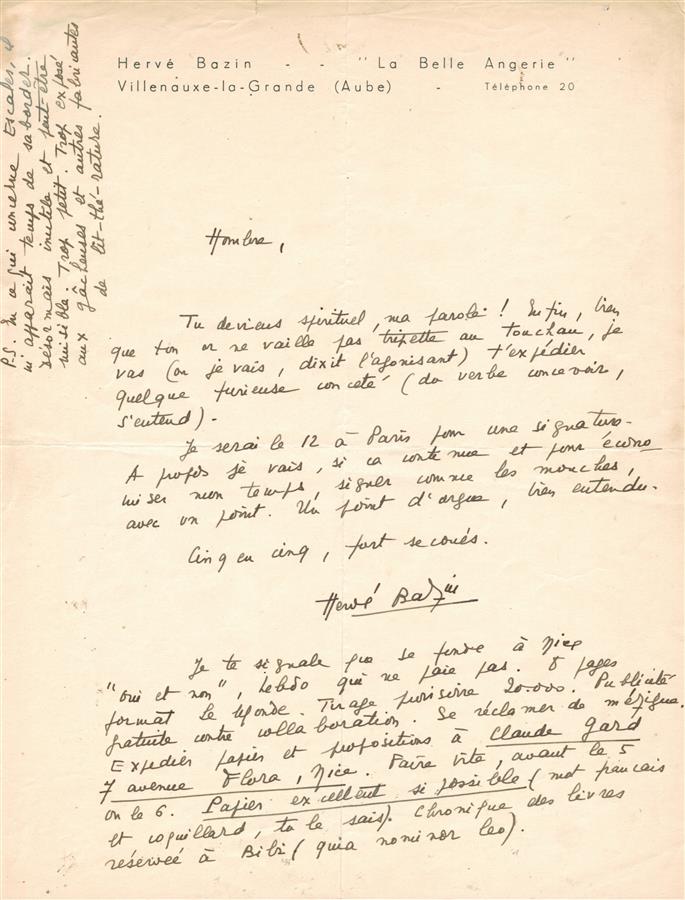 Hervé Bazin - - "La Belle Angerie"
Villenauxe-la-Grande (Aube) - Téléphone 20
Hombre,
Tu deviens spirituel, ma parole ! Enfin, bien
que ton or ne vaille pas tripette au touchau, je
vas (ou je vais, dixit l'agonisant) t'expédier
quelque furieuse conceté (du verbe concevoir,
s'entend).
Je serai le 12 à Paris pour une signature.
A propos je vais, si ça continue et pour écono
miser mon temps, signer comme les mouches,
avec un point. Un point d'orgue, bien entendu.
Cinq en cinq, fort secoués.
Hervé Bazin
Je te signale que se fonde à Nice
"oui et non", hebdo qui ne paie pas. 8 pages
format le Monde. Tirage provisoire 20.000. Publicité
gratuite contre collaboration. Se réclamer de mézigue.
Expedier papiers et propositions à Claude Gard
7 avenue Flora, Nice. Faire vite, avant le 5
ou le 6. Papier excellent si possible (mot français
et coquillard, tu le sais). Chronique des livres
réservée à Bibi (quia nominor leo).
P.S. En ce qui concerne Escales, il
m'apparaît temps de saborder.
Désormais inutile et peut-être
nuisible. Trop petit. Trop exposé
aux gâcheuses et autres fabricantes
de lit-thé-rature.